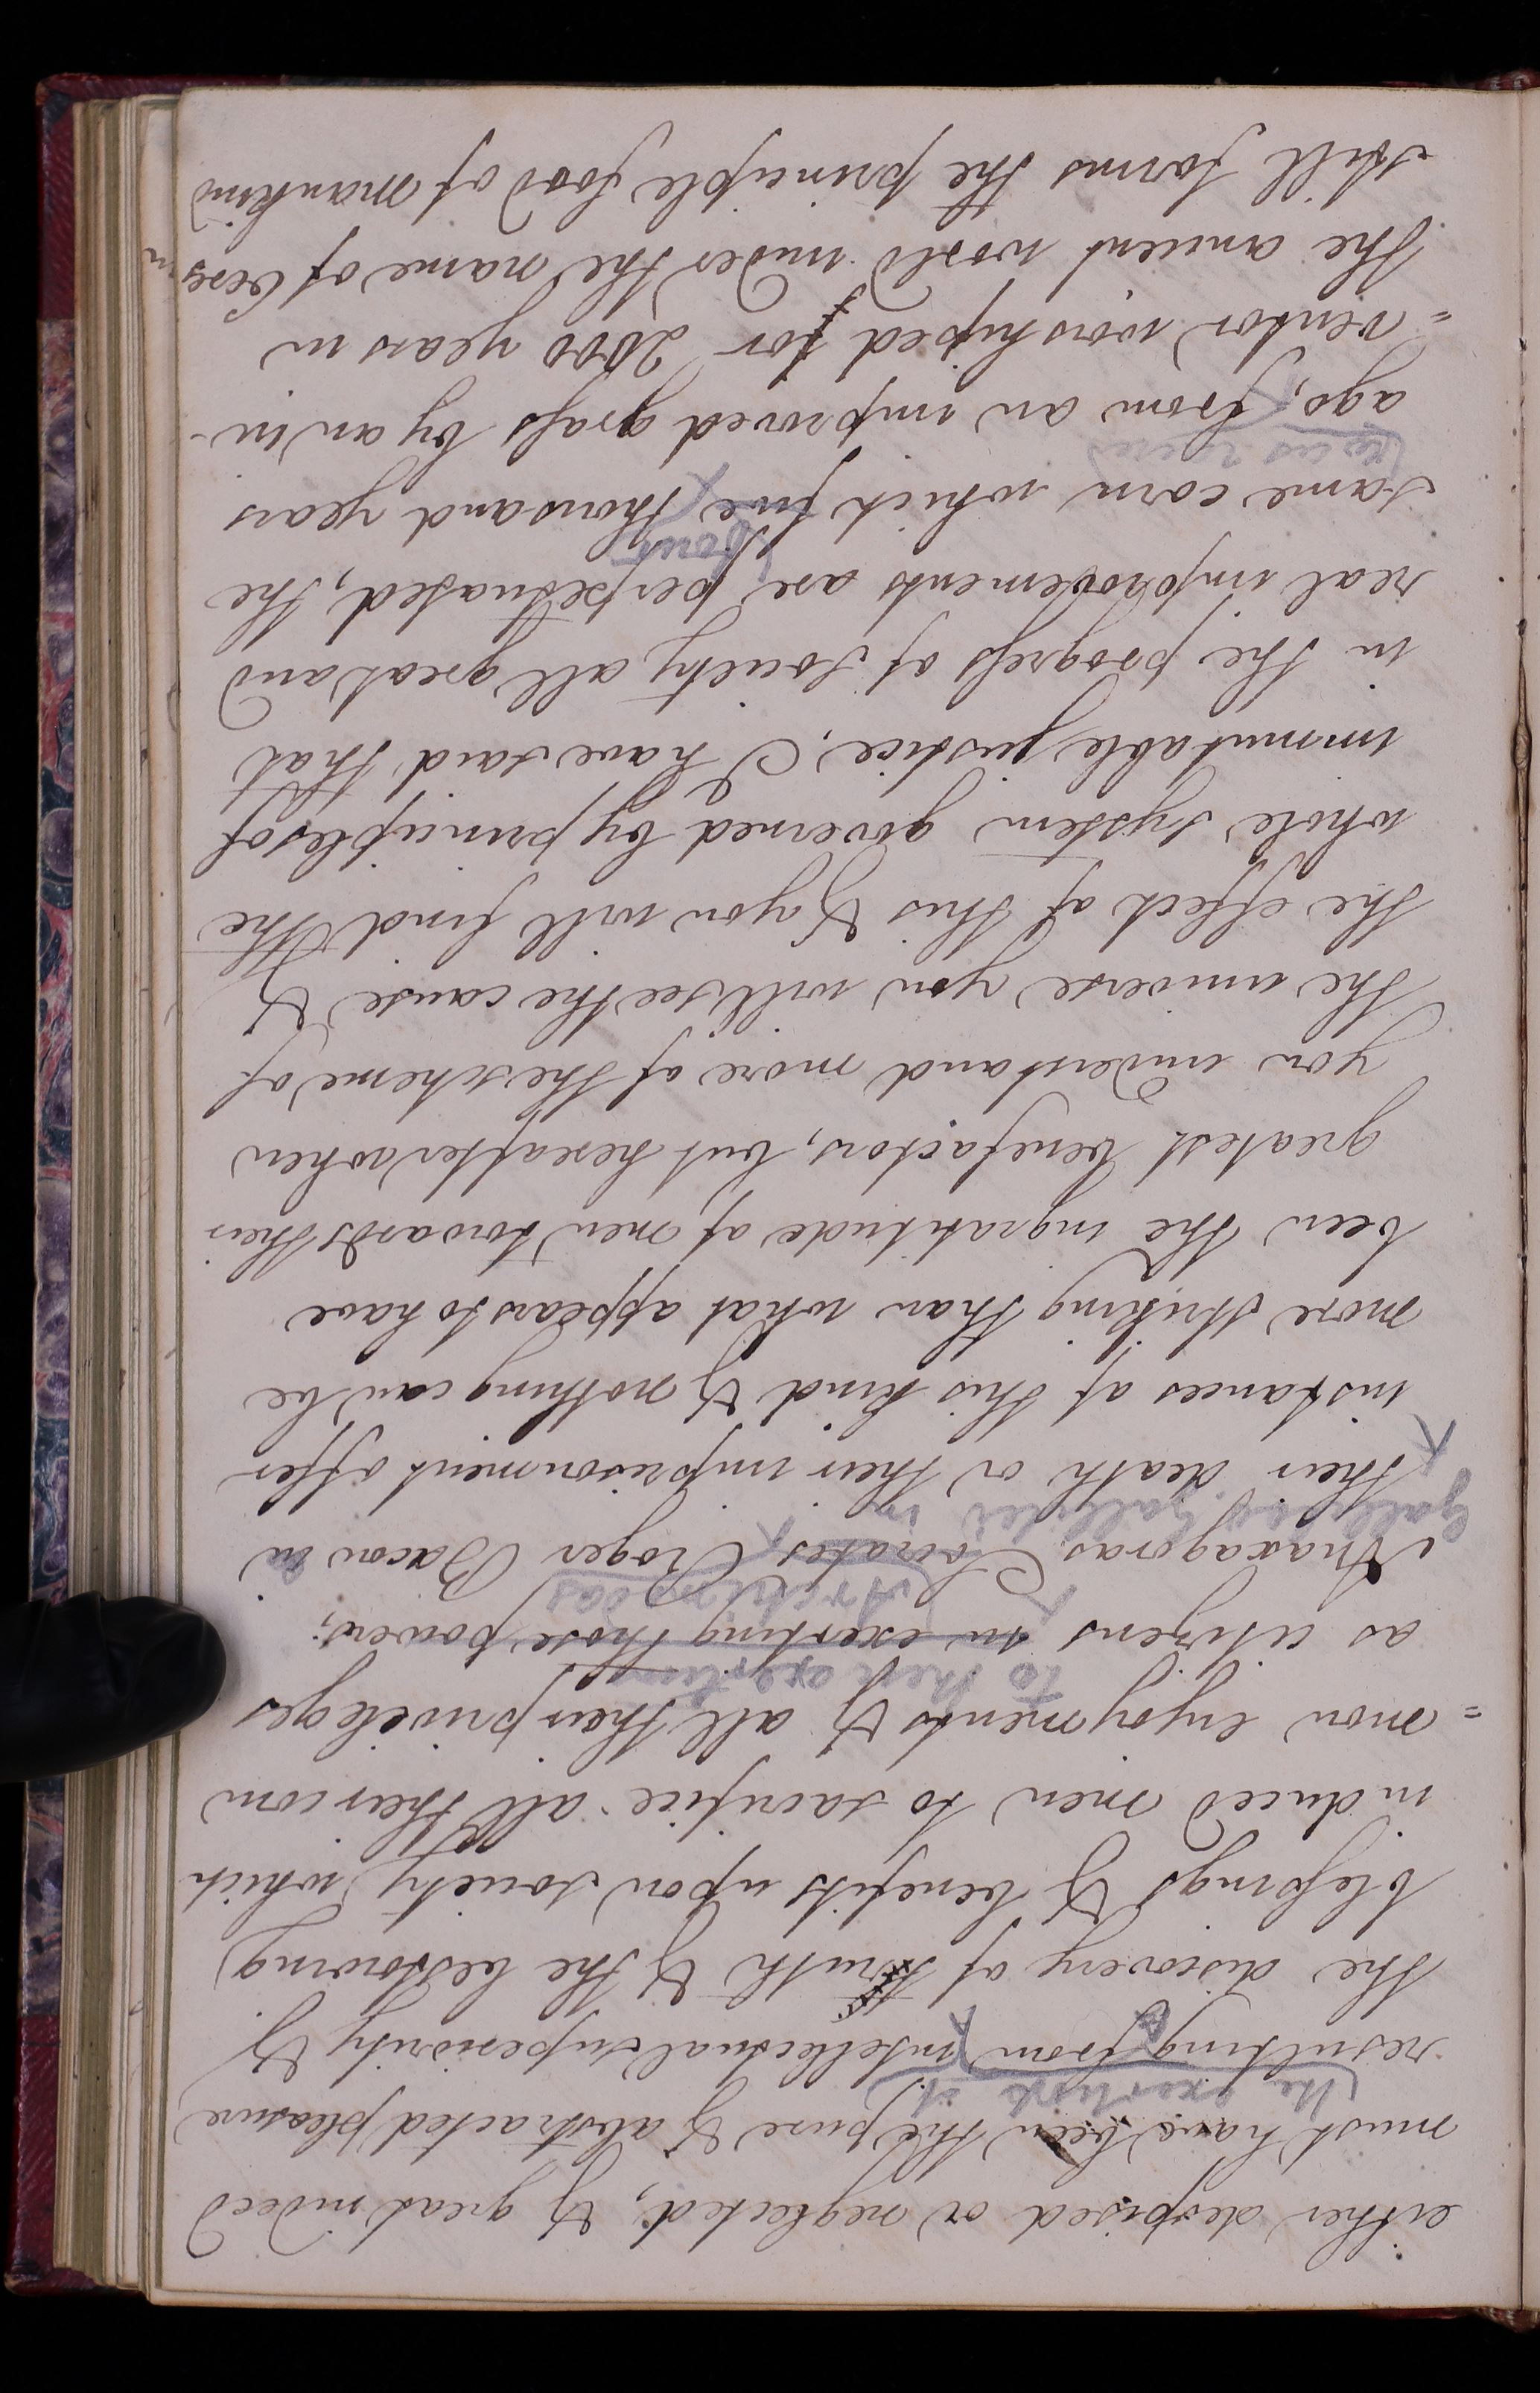 either despised or neglected, & great indeed
must have been the pure & abstracted pleasure
(the exertion of)
resulting from intellectual superiority &
the discovery of truth & the bestowing
blessings & benefits upon society which
induced men to sacrifice all their com
=mon enjoyments & all their privileges
to their exertion
as citizens in exerting those powers;
Archimedes
Anaxagoras Socrates Roger Bacon in
Galileo Galilei in
their death or their imprisonment offer
instances of this kind & nothing can be
more striking than what appears to have
been the ingratitude of men towards their
greatest benefactors, but hereafter when
you understand more of the scheme of
the universe you will see the cause &
the effect of this & you will find the
whole system governed by principles of
immutable justice. I have said that
in the progress of society all great and
real improvements are perpetuated, the
four
same corn which five thousand years
ago, from an improved grass by an in-
=ventor worshiped for 2000 years in
the ancient world under the name of Ceres
still forms the principle food of mankind